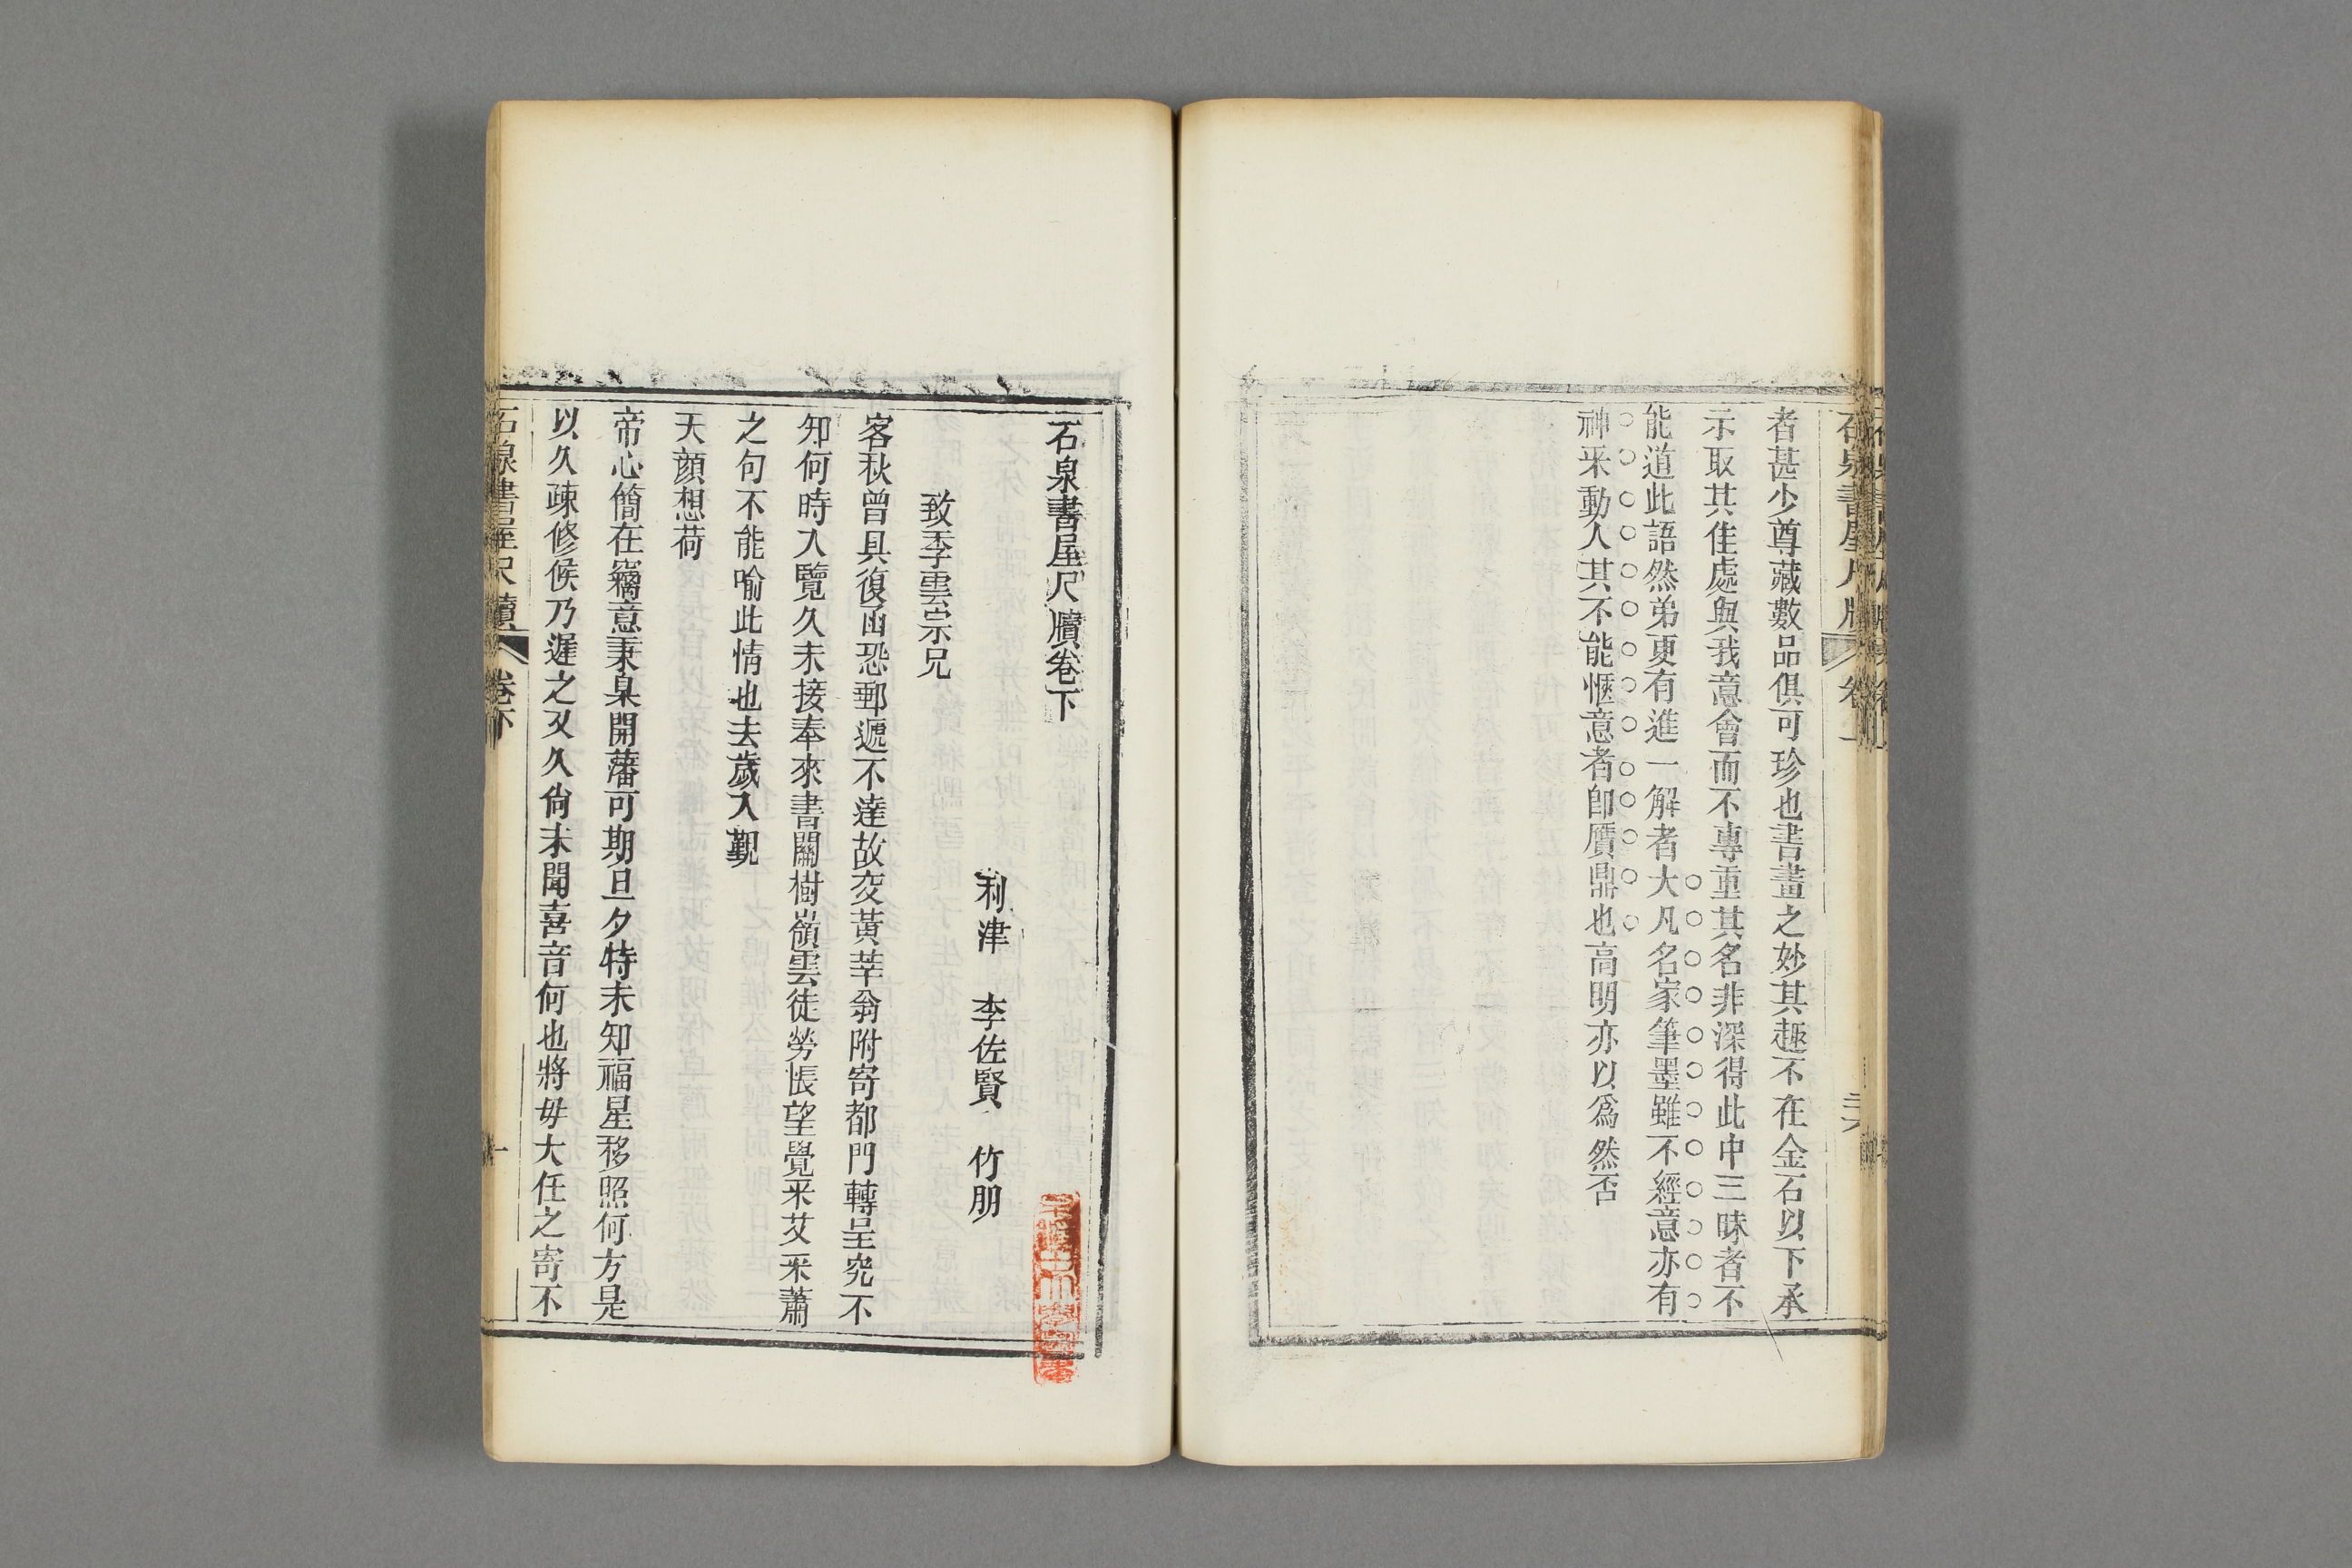 者甚少尊藏數品俱可珍也書畫之妙其趣不在金石以下承
示取其佳處與我意會而不專重其名非深得此中三昧者不
能道此語然弟更有進一解者大凡名家筆墨雖不經意亦有
神采動人其不能愜意者卽贋鼎也高明亦以爲然否
石泉書屋尺牘卷下
利津 李佐賢 竹朋
致季雲宗兄
客秋曾具復函恐郵遞不達故交黃莘翁附寄都門轉呈究不
知何時入覽久未接奉來書關樹嶺雲徒勞悵望覺采艾采蕭
之句不能喻此情也去歲入覲
天顏想荷
帝心簡在竊意秉臬開藩可期旦夕特未知福星移照何方是
以久疎修候乃遲之又久尙未聞喜音何也將毋大任之寄不
石泉書屋尺牘 卷下 一